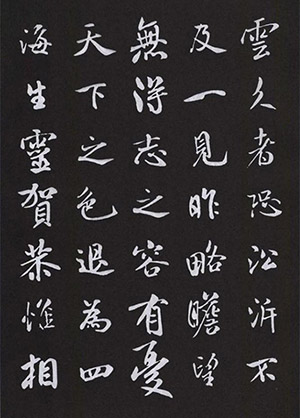 雲久者恐沿泝不
及一見昨略瞻望
無得志之容有憂
天下之色退為四
海生靈賀恭惟相